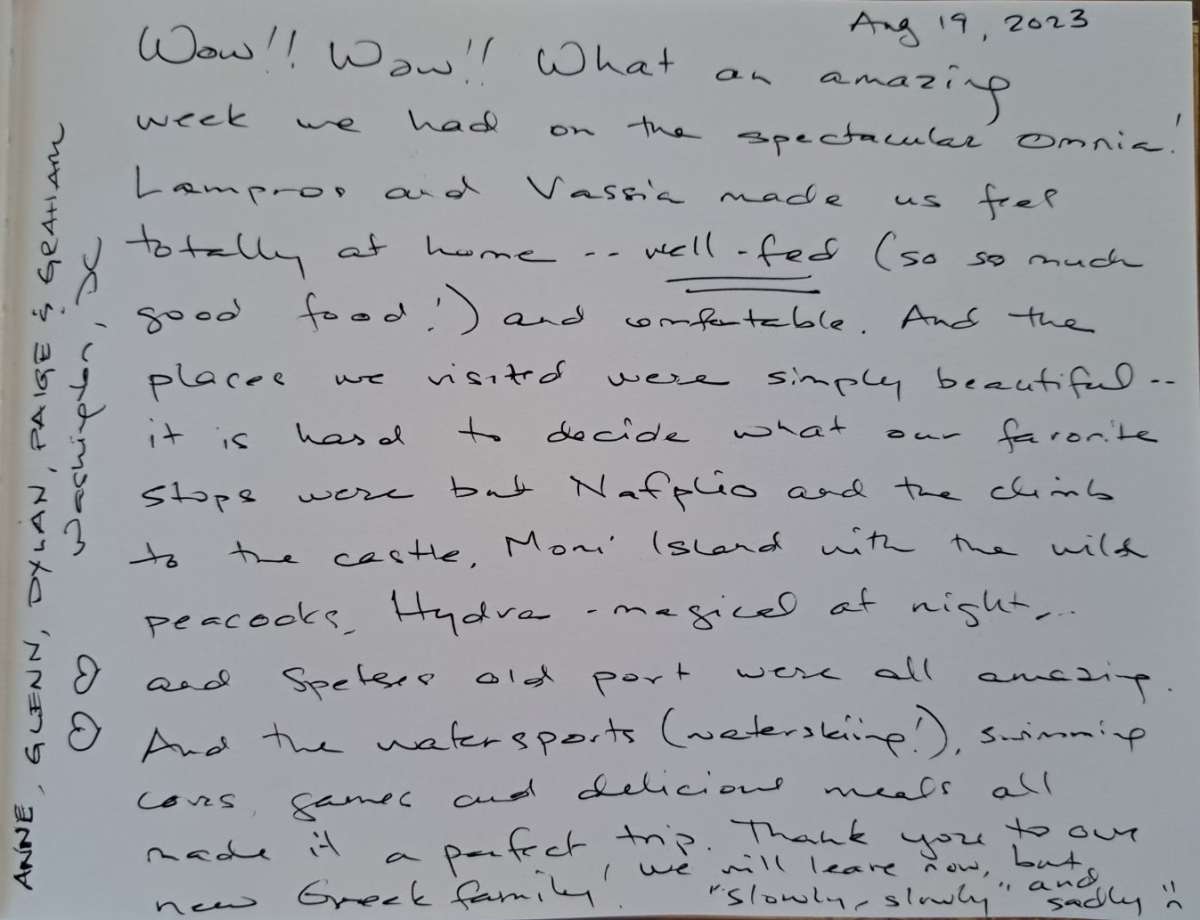 Aug 19, 2023
Wow!! Wow!! What an amazing
week we had on the spectacular Omnia!
Lampros and Vassia made us feel
totally at home -- well-fed (so so much
good food!) and comfortable. And the
places we visited were simply beautiful --
it is hard to decide what our favorite
stops were but Nafplio and the climb
to the castle, Moni Island with the wild
peacocks, Hydra - magical at night,..
and Spetses old port were all amazing.
And the watersports (waterskiing!), swimming
coves, games and delicious meals all
made it a perfect trip. Thank you to our
new Greek family! We will leave now, but
"slowly, slowly" and sadly
ANNE, GLENN, DYLAN, PAIGE & GRAHAM
Washington, DC